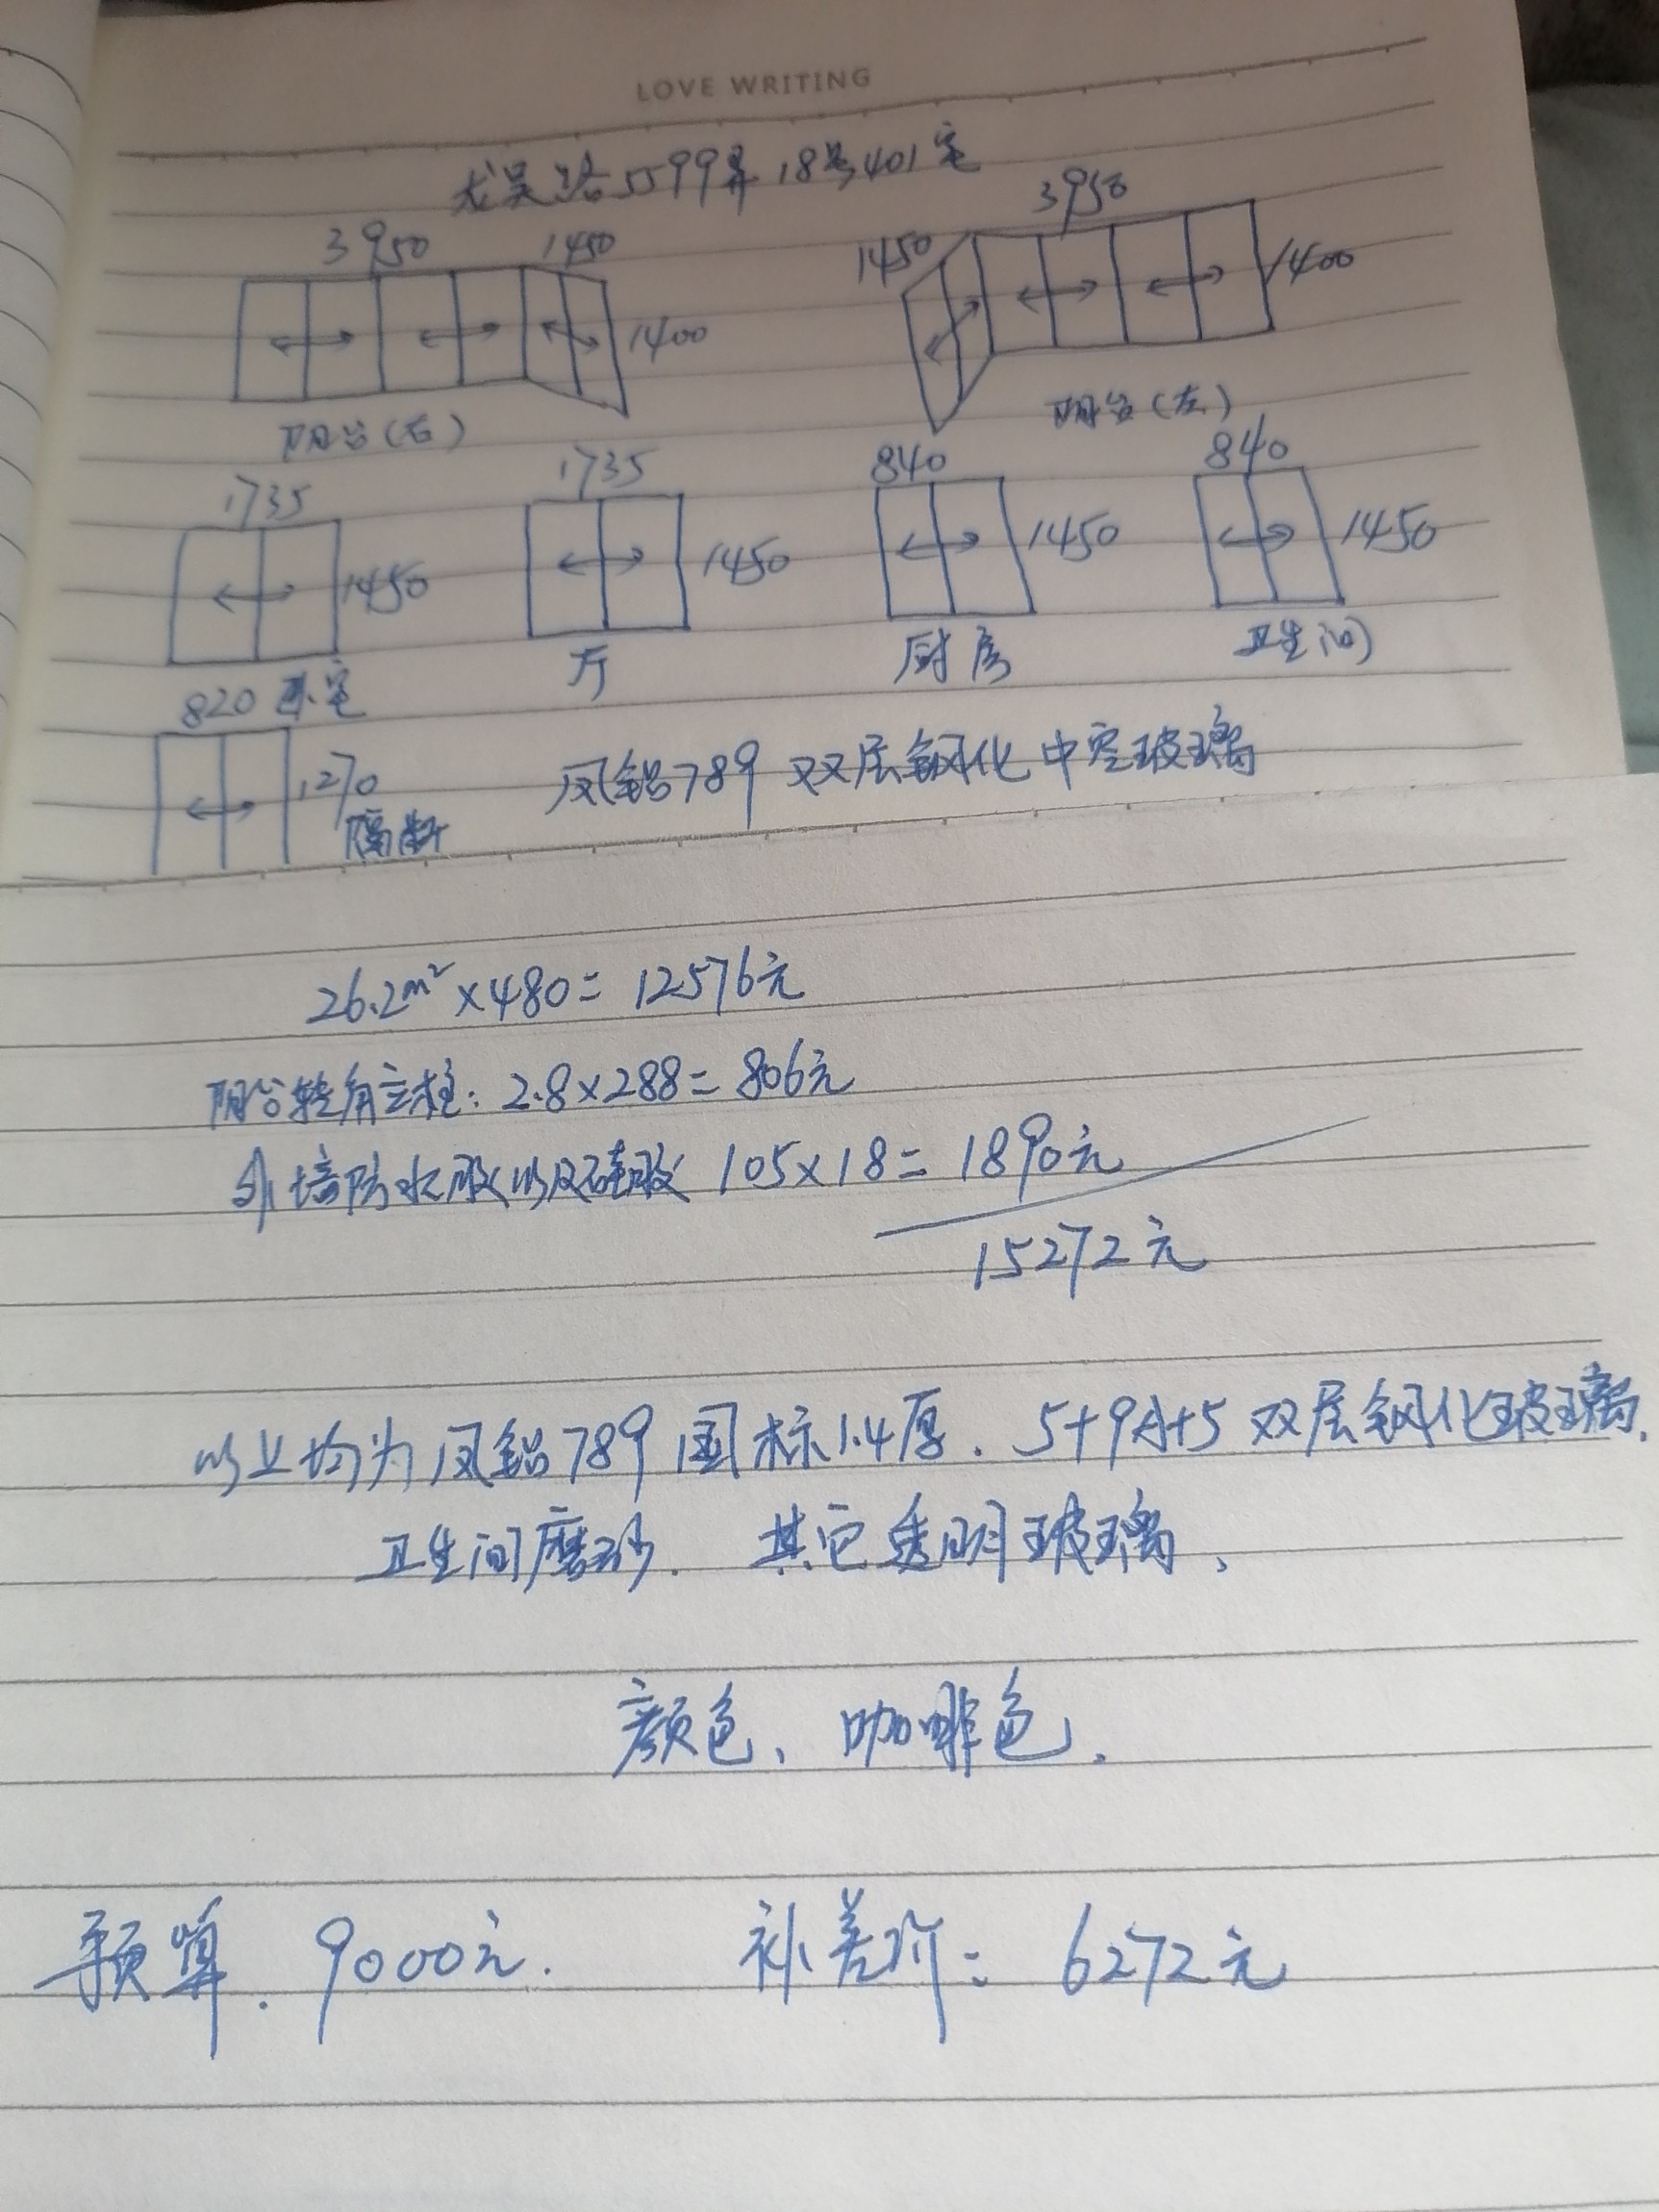 LOVE WRITING
龙吴路5599弄18号401室
3950 1450 1400
阳台(右)
1450 3950 1400
阳台(左)
1735 1450
卧室
1735 1450
厅
840 1450
厨房
840 1450
卫生间
820 1270
隔断
凤铝789 双层钢化中空玻璃
26.2m²×480=12576元
阳台转角立柱:2.8×288=806元
外墙防水胶以及硅胶 105×18=1890元
15272元
以上均为凤铝789国标1.4厚.5+9A+5双层钢化玻璃.
卫生间磨砂. 其它透明玻璃、
颜色、咖啡色.
预算.9000元. 补差价:6272元